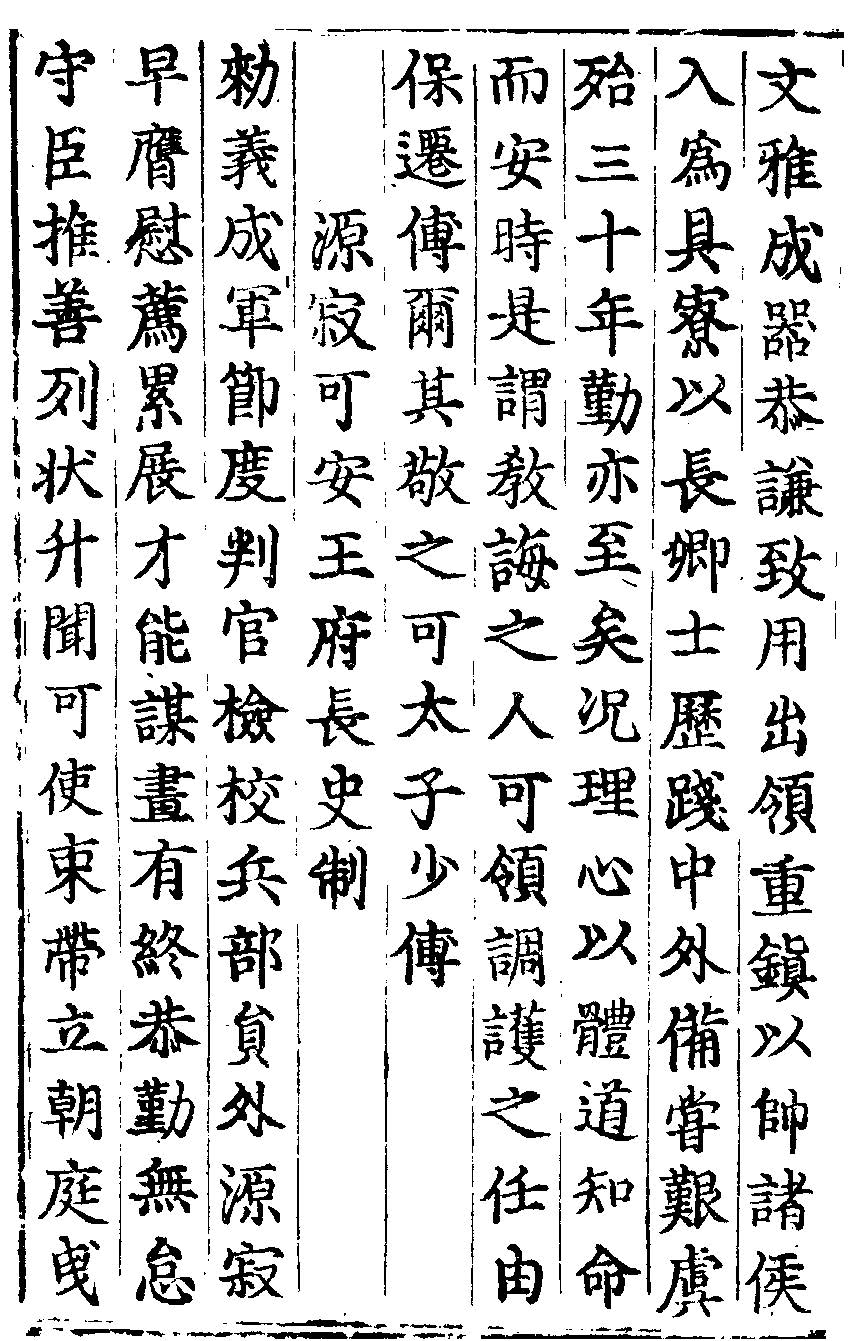 文雅成器恭謙致用出領重鎮以帥諸侯
入為具寮以長卿士歷踐中外備嘗艱虞
殆三十年勤亦至矣况理心以體道知命
而安時是謂教誨之人可領調護之任由
保遷傅爾其敬之可太子少傅
源寂可安王府長史制
勑義成軍節度判官檢校兵部貟外源寂
早膺慰薦累展才能謀畫有終恭勤無怠
守臣推善列狀升聞可使束帶立朝庭曳